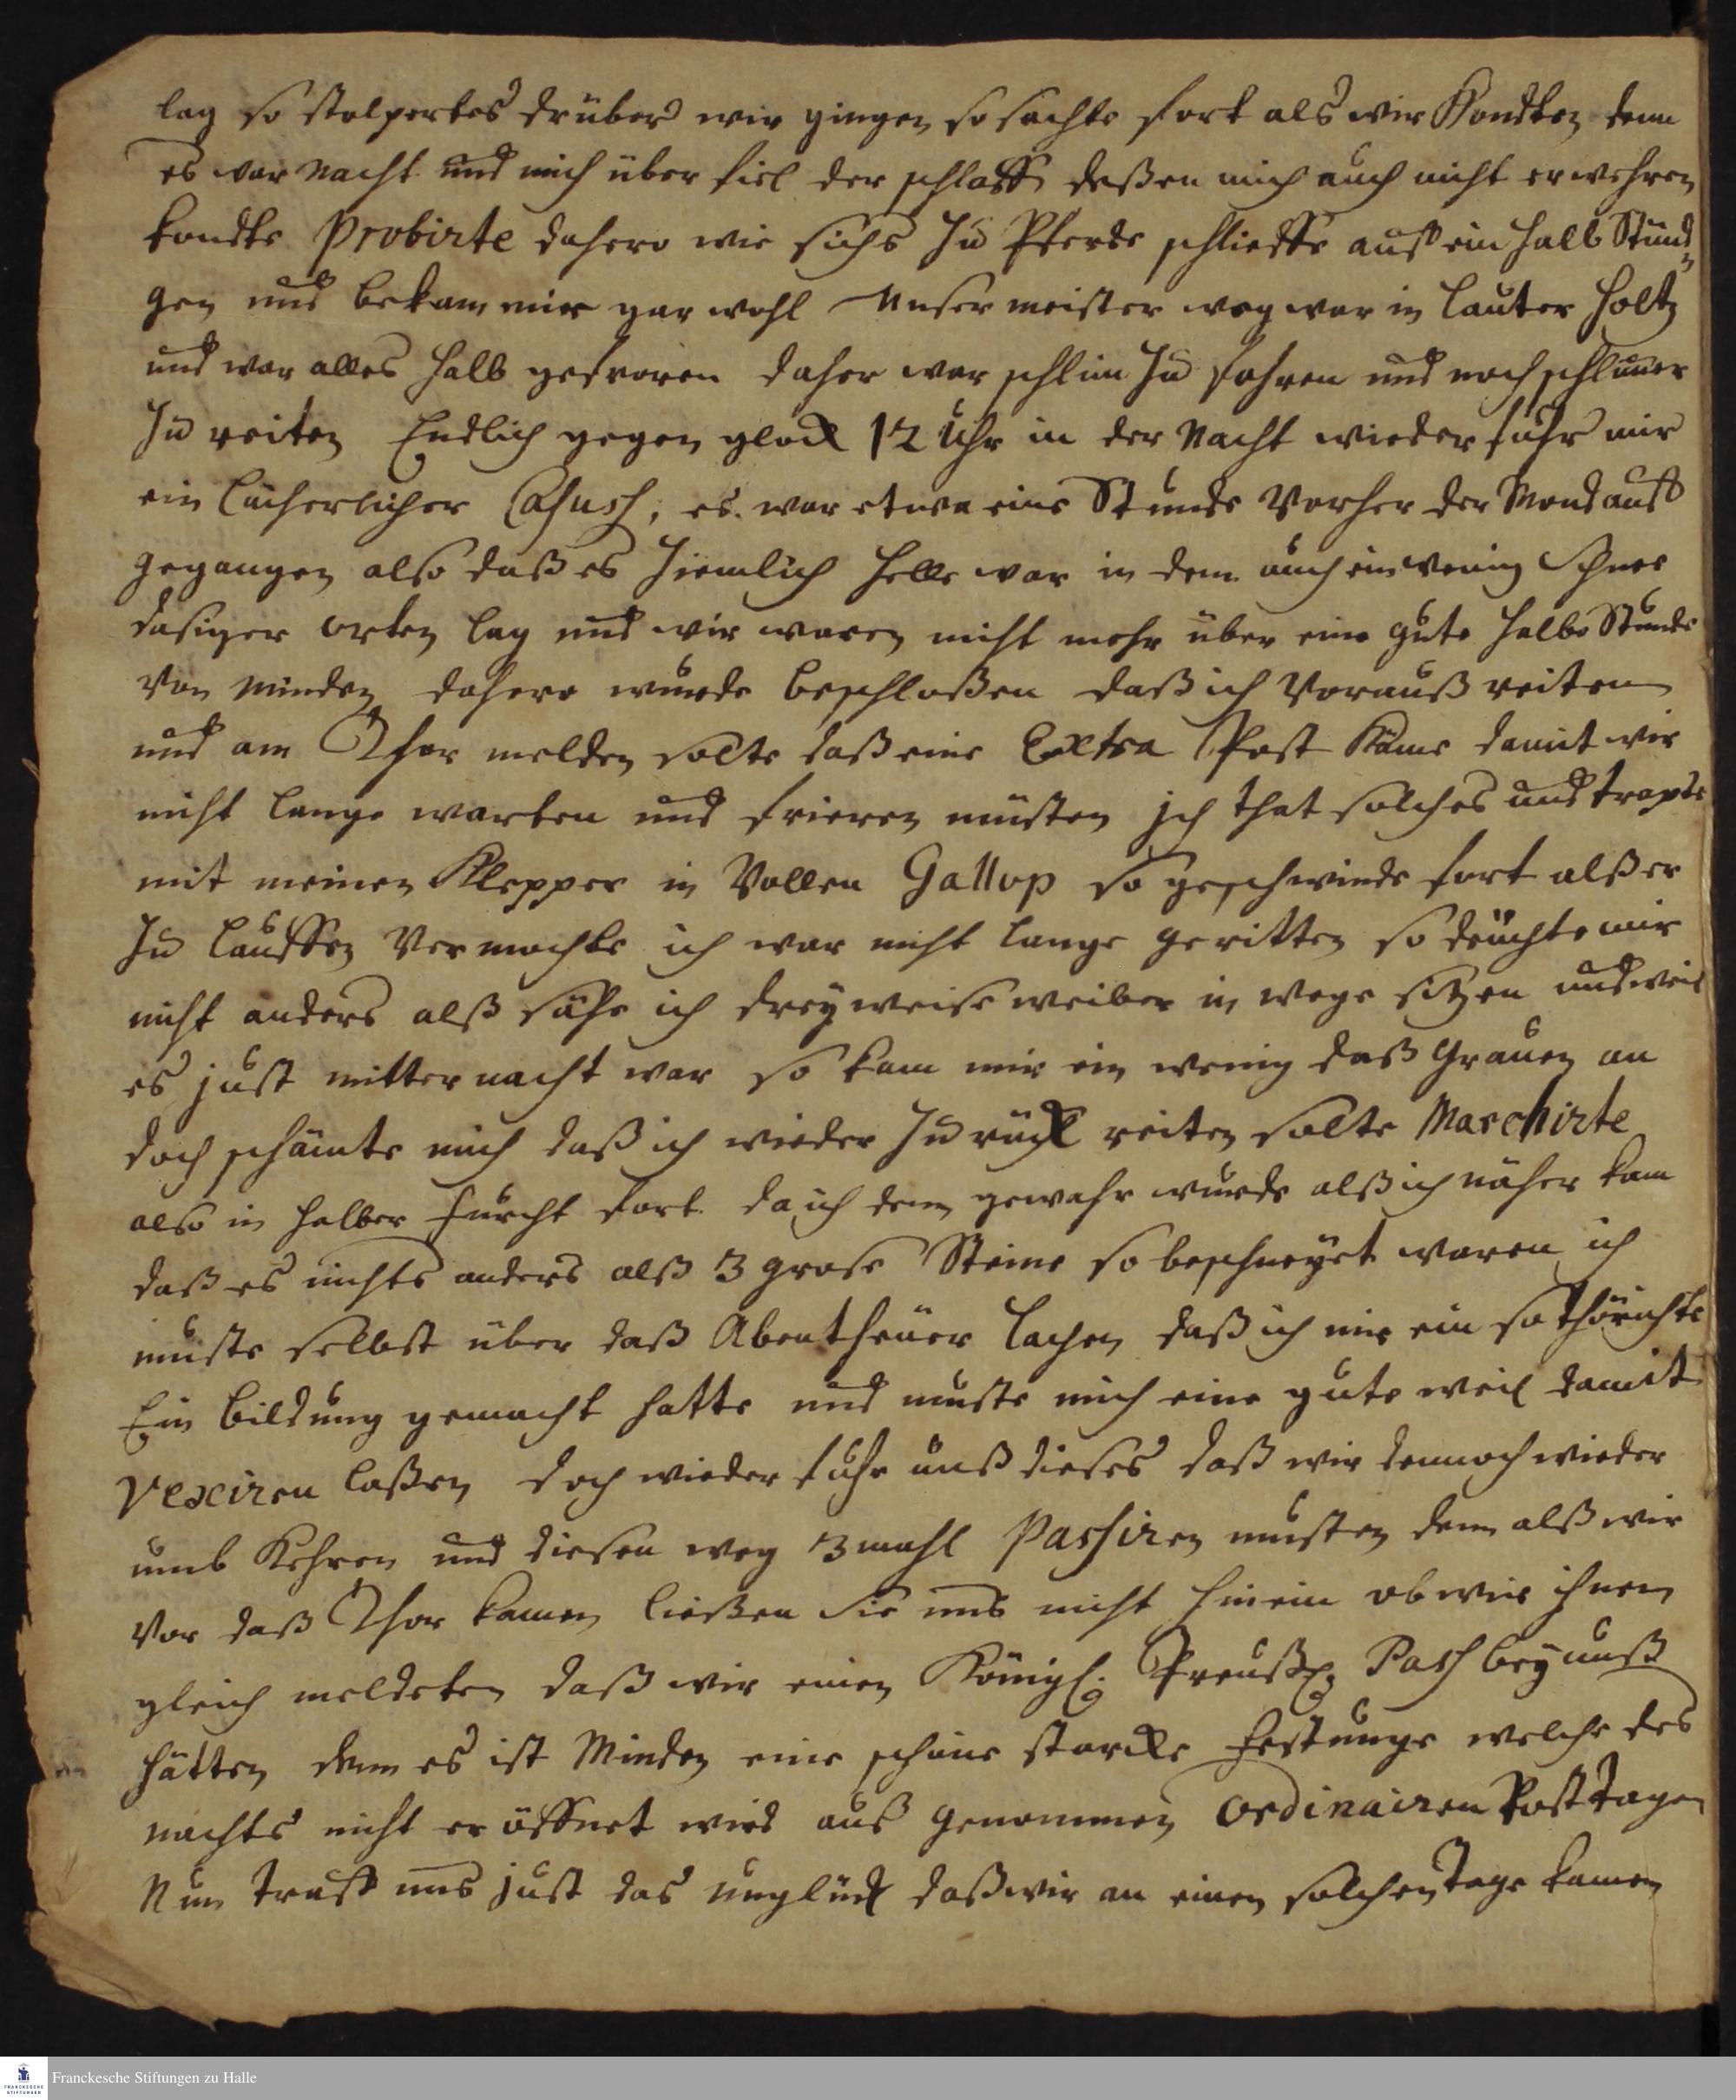 lag so stolpertes drüber wir gingen so sachte fort als wir Kondten denn
es war Nacht und mich über fiel der schlaff deßen mich auch nicht erwehren
kondte Probirte dahero wie sichs zu Pferde schlieffe auff ein halb Stünd„
gen und bekam mir gar wohl Unser meister weg war in lauter Holtz
und war alles halb gefroren daher war schlim zu fahren und noch schlimer
zu reiten Endlich gegen glock 12 Uhr in der Nacht wieder fuhr mir
ein lächerlicher Casus, es war etwa eine Stunde Vorher der Mond auff
gegangen also daß es ziemlich helle war in dem auch ein wenig Schnee
dasiger orten lag und wir waren nicht mehr über eine gute halbe Stunde
Von Minden dahero wurde beschloßen daß ich Vorauß reiten
und am Thor melden solte daß eine Extra Post Käme damit wir
nicht lange warten und frieren müsten ich that solches und trapte
mit meinen Klepper in Vollen Gallop so geschwinde fort alß er
zu lauffen Vermochte ich war nicht lange geritten so deüchte mir
nicht anders alß sähe ich drey weise weiber in wege sitzen und weil
es just mitternacht war so kam mir ein wenig daß Grauen an
doch schämte mich daß ich wieder zu rück reiten solte Marchirte
also in halber furcht fort da ich denn gewahr wurde alß ich näher kam
daß es nichts anders alß 3 grose Steine so beschneyet waren ich
muste selbst über daß Abentheüer lachen daß ich mir ein so thörichte
Ein bildung gemacht hatte und muste mich eine gute weil damit
vexiren laßen doch wieder fuhr unß dieses daß wir dennoch wieder
umb Kehren und diesen weg 3 mahl Passiren musten denn alß wir
Vor daß Thor kamen ließen Sie uns nicht hinein ob wir ihnen
gleich meldeten daß wir einen Königl. Preuß. Pass bey unß
hätten denn es ist Minden eine schöne starcke Festunge welche des
nachts nicht er öffnet wird auß genommen ordinairen Post tagen
Nun traff uns just das unglück daß wir an einen solchen tage kamen
Franckesche Stiftungen zu Halle
FRANCKESCHE
STIFTUNGEN